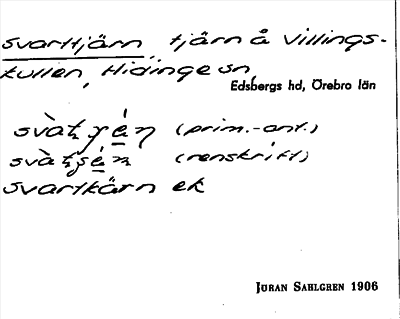 Svarttjärn, tjärn å Villings-
kullen, Hidinge sn,
Edsbergs hd, Örebro län
(prim.-ant.)
(renskrift)
Svarttkärn ek
JÖRAN SAHLGREN 1906